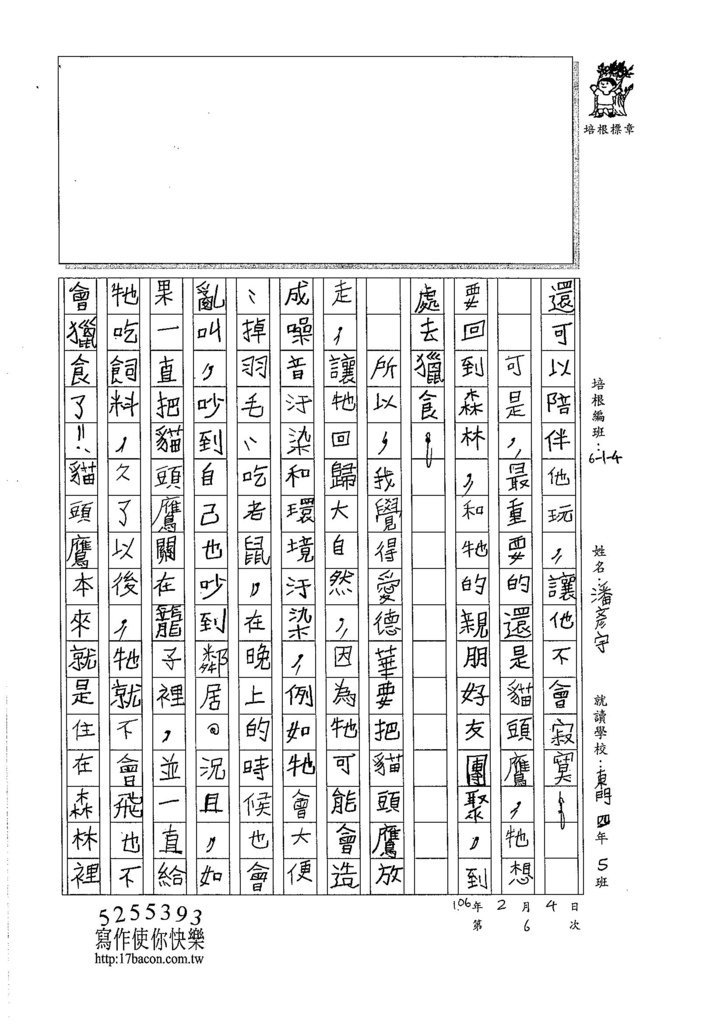 培根標章
培根編班：6-1-4
姓名：潘彥宇
就讀學校：東門四年5班
106年2月4日
第6次
還可以陪伴他玩，讓他不會寂寞！
可是，最重要的還是貓頭鷹，牠想
要回到森林，和牠的親朋好友團聚，到
處去獵食！
所以，我覺得愛德華要把貓頭鷹放
走，讓牠回歸大自然，因為牠可能會造
成噪音汙染和環境汙染，例如牠會大便
、掉羽毛、吃老鼠，在晚上的時候也會
亂叫，吵到自己也吵到鄰居。況且，如
果一直把貓頭鷹關在籠子裡，並一直給
牠吃飼料，久了以後，牠就不會飛也不
會獵食了！！貓頭鷹本來就是住在森林裡
5255393
寫作使你快樂
http:17bacon.com.tw